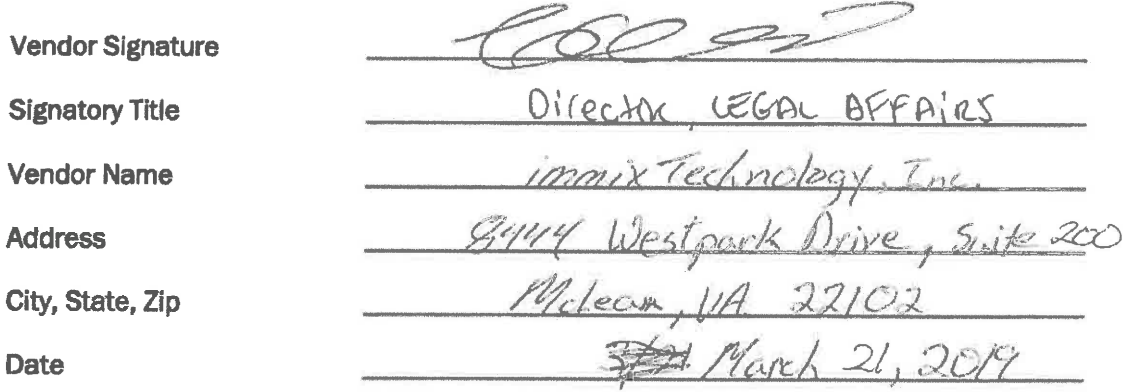 Vendor Signature
Signatory Title Director, LEGAL AFFAiRS
Vendor Name immixTechnology, Inc.
Address 8444 Westpark Drive, Suite 200
City, State, Zip McLean, VA 22102
Date March 21, 2019